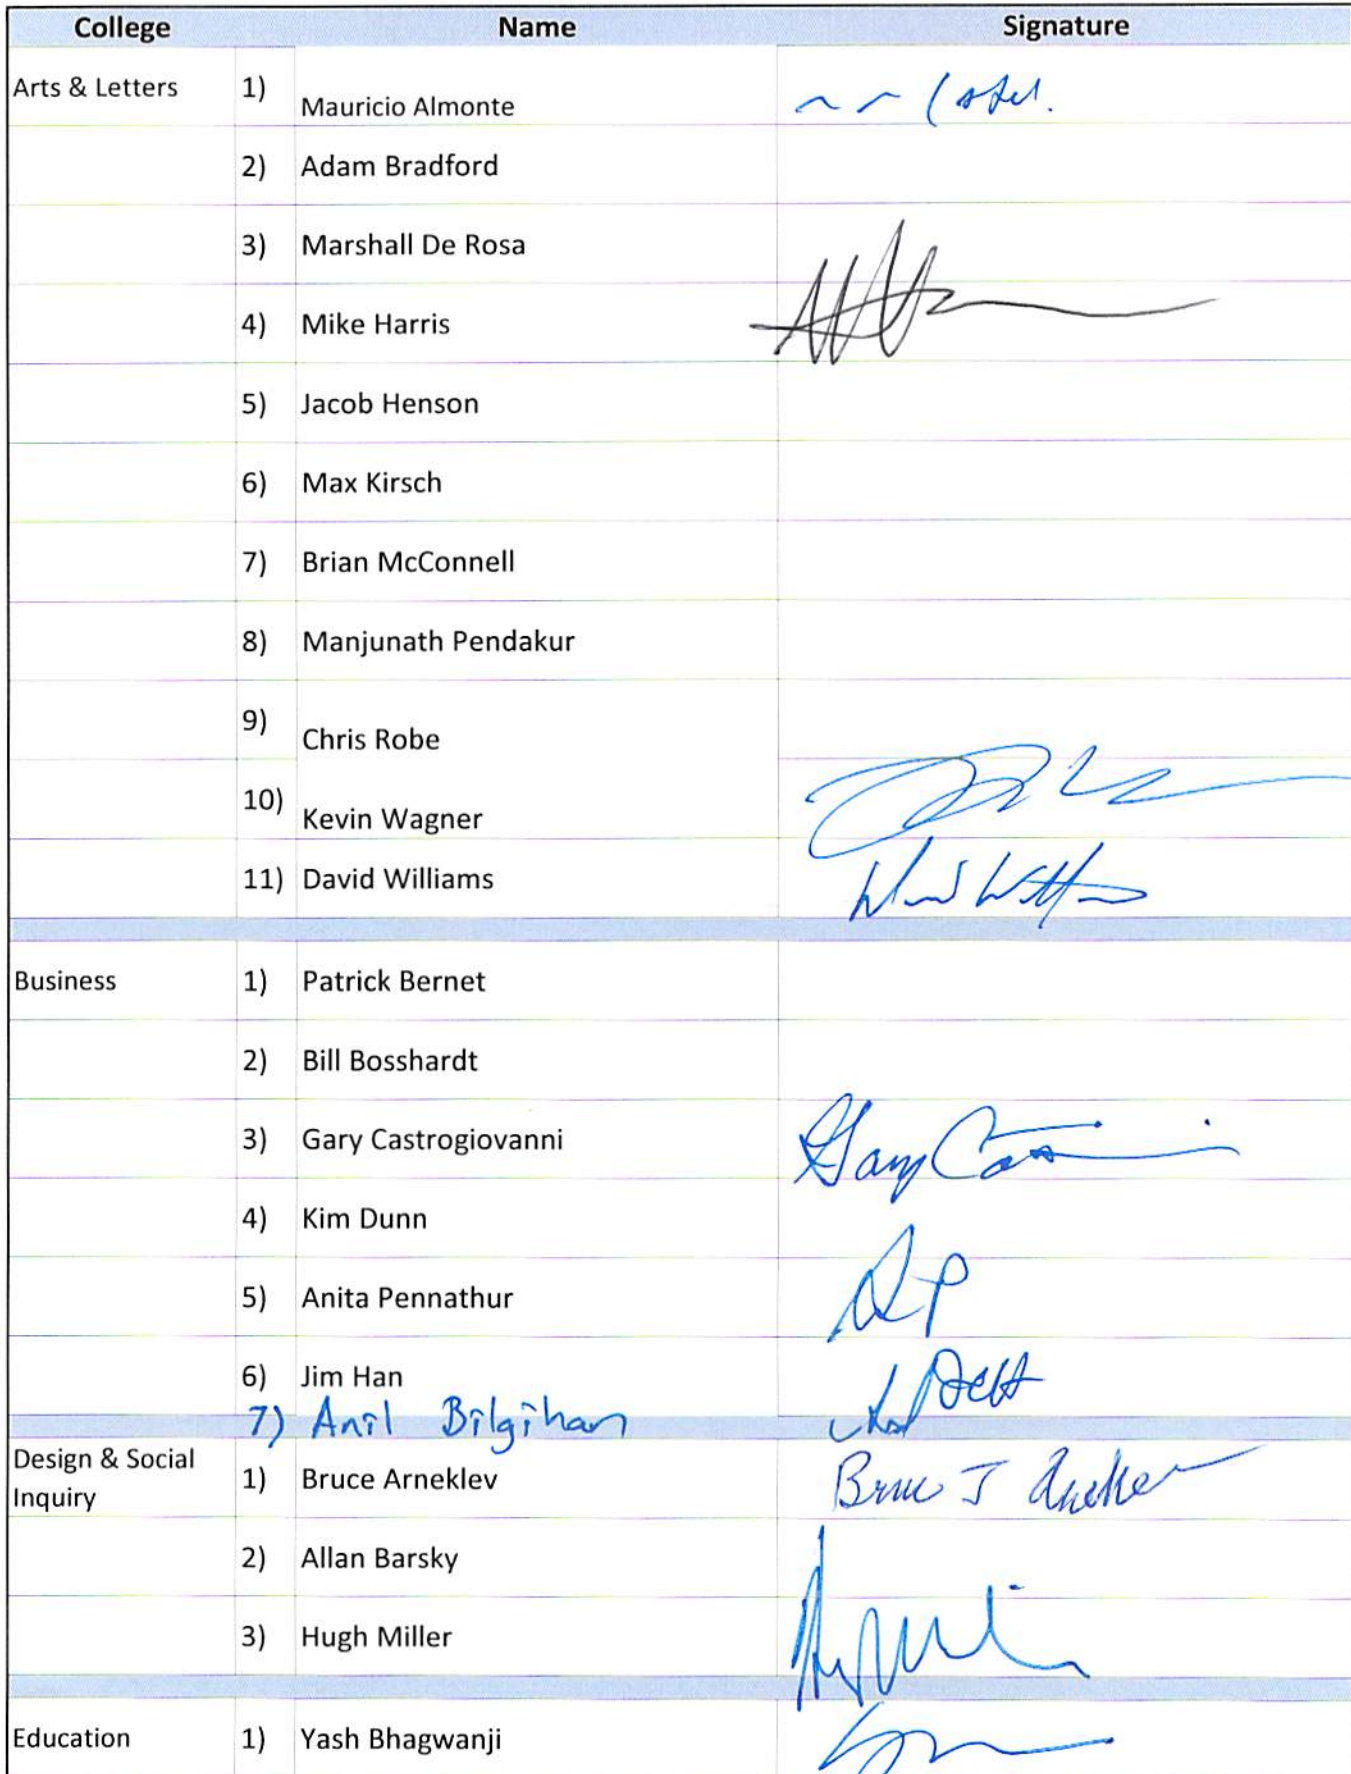 College Name Signature
Arts & Letters 1) Mauricio Almonte
2) Adam Bradford
3) Marshall De Rosa
4) Mike Harris
5) Jacob Henson
6) Max Kirsch
7) Brian McConnell
8) Manjunath Pendakur
9) Chris Robe
10) Kevin Wagner
11) David Williams
Business 1) Patrick Bernet
2) Bill Bosshardt
3) Gary Castrogiovanni Gary
4) Kim Dunn
5) Anita Pennathur AP
6) Jim Han
7) Anil Bilgihan
Design & Social
Inquiry 1) Bruce Arneklev Bruce J
2) Allan Barsky
3) Hugh Miller
Education 1) Yash Bhagwanji